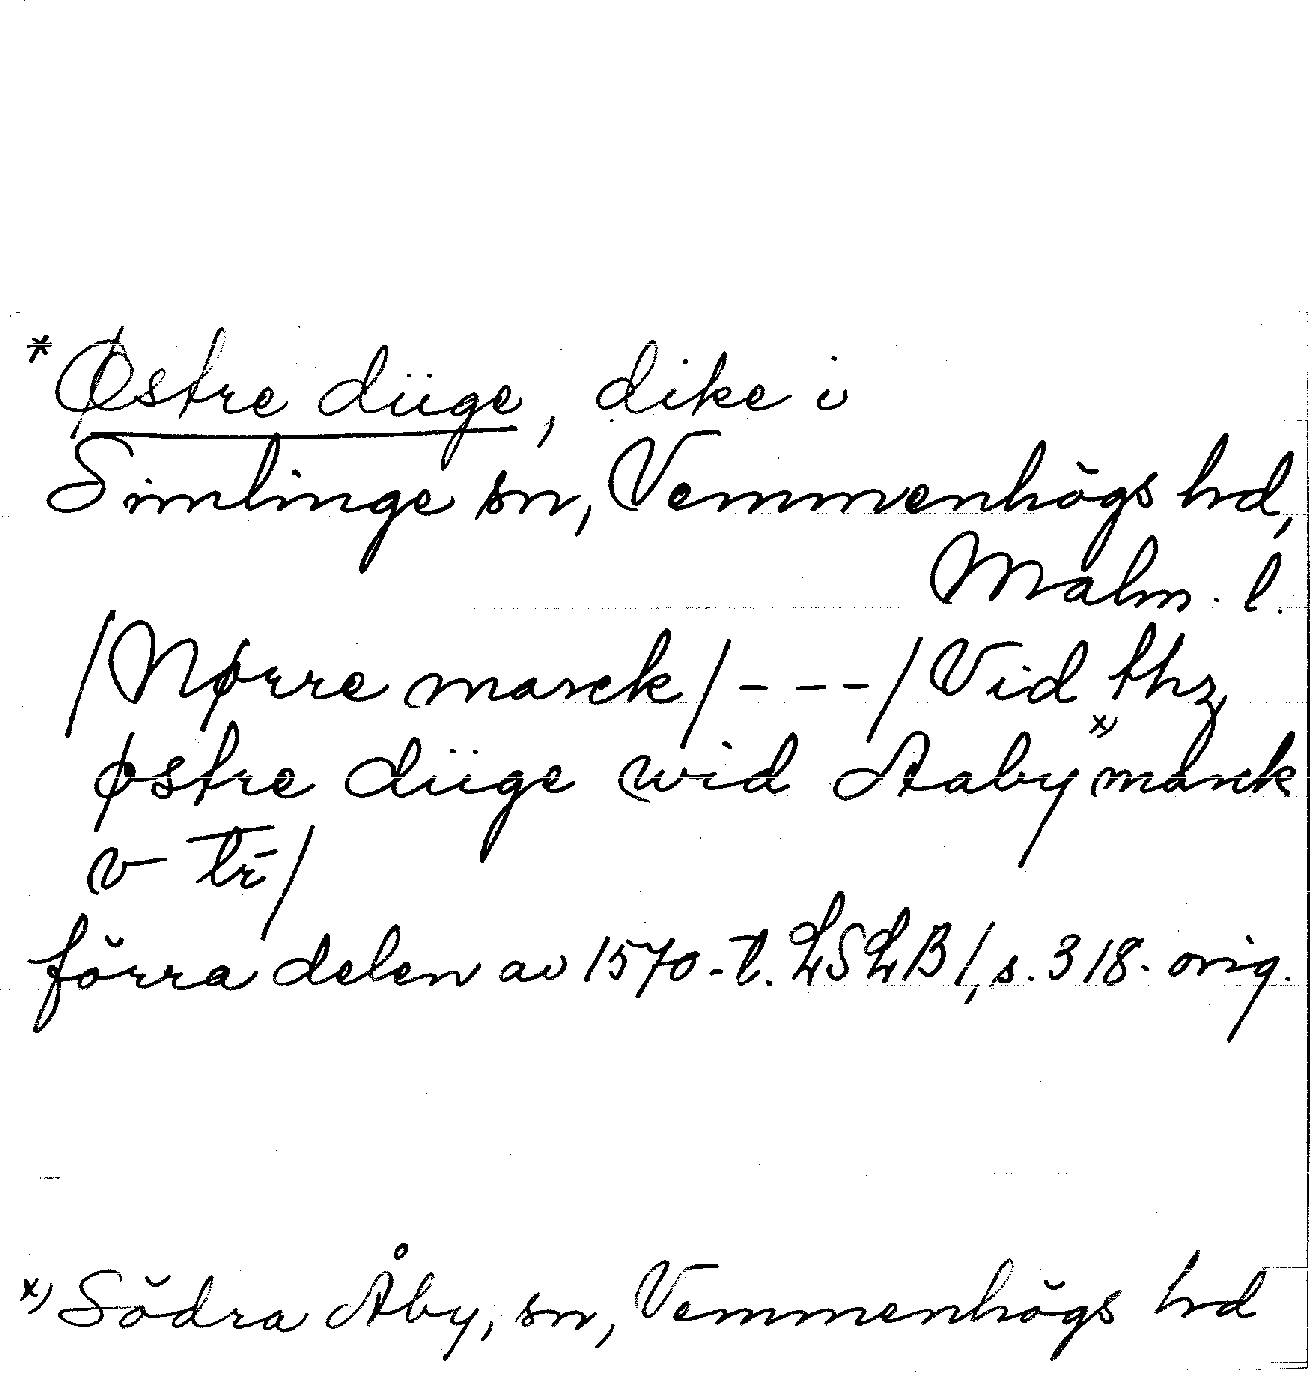 *Østre düge, dike i
Simlinge sn, Vemmenhögs hd,
Malm. l.
/Nørre marck/ - - - / Vid thz
østre düge wid Aaby x) marck
v tr/
förra delen av 1570-t. LSLB 1, s. 318. orig.
x) Södra Åby, sn, Vemmenhögs hd